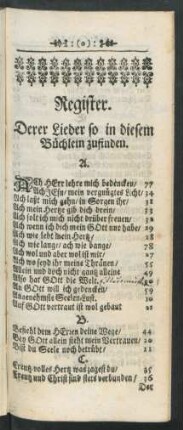 Register.
Derer Lieder so in diesem
Büchlein zufinden.
A.
ACh HErr lehre mich bedencken/ 77
Ach JEsu/ mein vergnügtes Licht/ 34
Ach laßt mich gehn/ in Sorgen ihr/ 31
Ach mein Hertz gib dich drein/ 33
Ach solt ich mich nicht drüber freuen/
Ach wenn ich dich mein GOtt nur habe/
Ach wie liebt mein Hertz/
Ach wie lang/ ach wie bange/ 78
Ach wol und aber wol ist mir/
Ach wo seyd ihr meine Thränen/ 55
Allein und doch nicht gantz alleine 49
Also hat GOtt die Welt,
An GOtt will ich gedencken/ 59
Angenehmste Seelen-Lust.
Auf GOtt vertraut ist wol gebaut
B.
Befiehl dem HErren deine Wege/ 44
Bey GOtt allein steht mein Vertrauen/
Bist du Seele noch betrübt/ 11
C.
Creutz volles Hertz was zagest du/ 35
Creutz und Christ sind stets verbunden/ 36
Der